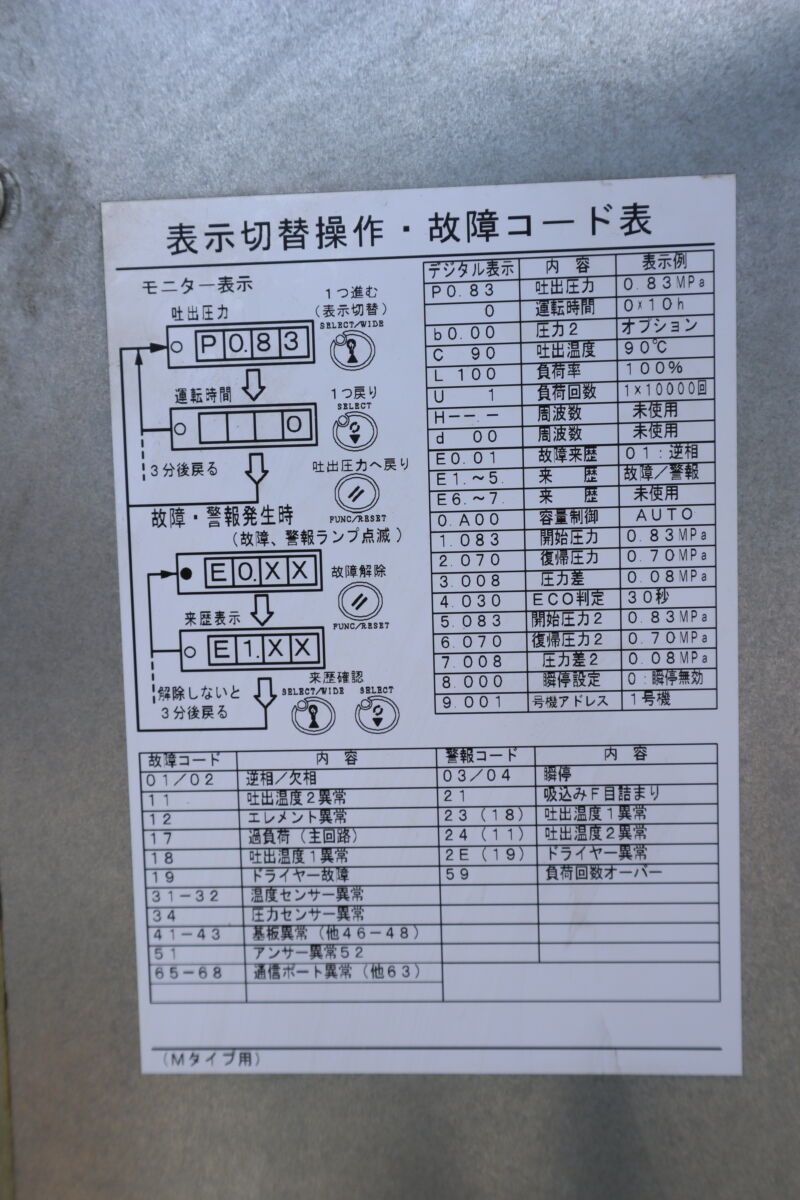 表示切替操作・故障コード表
モニター表示
吐出圧力
P0.83
1つ進む
(表示切替)
SELECT/WIDE
運転時間
0
1つ戻り
SELECT
3分後戻る
吐出圧力へ戻り
FUNC/RESET
故障・警報発生時
(故障、警報ランプ点滅)
E0.XX
故障解除
FUNC/RESET
来歴表示
E1.XX
解除しないと
3分後戻る
来歴確認
SELECT/WIDE SELECT
デジタル表示 内 容 表示例
P0.83 吐出圧力 0.83MPa
0 運転時間 0×10h
b0.00 圧力2 オプション
C 90 吐出温度 90℃
L 100 負荷率 100%
U 1 負荷回数 1×10000回
H--.- 周波数 未使用
d 00 周波数 未使用
E0.01 故障来歴 01:逆相
E1.~5. 来 歴 故障/警報
E6.~7. 来 歴 未使用
0.A00 容量制御 AUTO
1.083 開始圧力 0.83MPa
2.070 復帰圧力 0.70MPa
3.008 圧力差 0.08MPa
4.030 ECO判定 30秒
5.083 開始圧力2 0.83MPa
6.070 復帰圧力2 0.70MPa
7.008 圧力差2 0.08MPa
8.000 瞬停設定 0:瞬停無効
9.001 号機アドレス 1号機
故障コード 内 容 警報コード 内 容
01/02 逆相/欠相 03/04 瞬停
11 吐出温度2異常 21 吸込みF目詰まり
12 エレメント異常 23(18) 吐出温度1異常
17 過負荷(主回路) 24(11) 吐出温度2異常
18 吐出温度1異常 2E(19) ドライヤー異常
19 ドライヤー故障 59 負荷回数オーバー
31-32 温度センサー異常
34 圧力センサー異常
41-43 基板異常(他46-48)
51 アンサー異常52
65-68 通信ポート異常(他63)
(Mタイプ用)